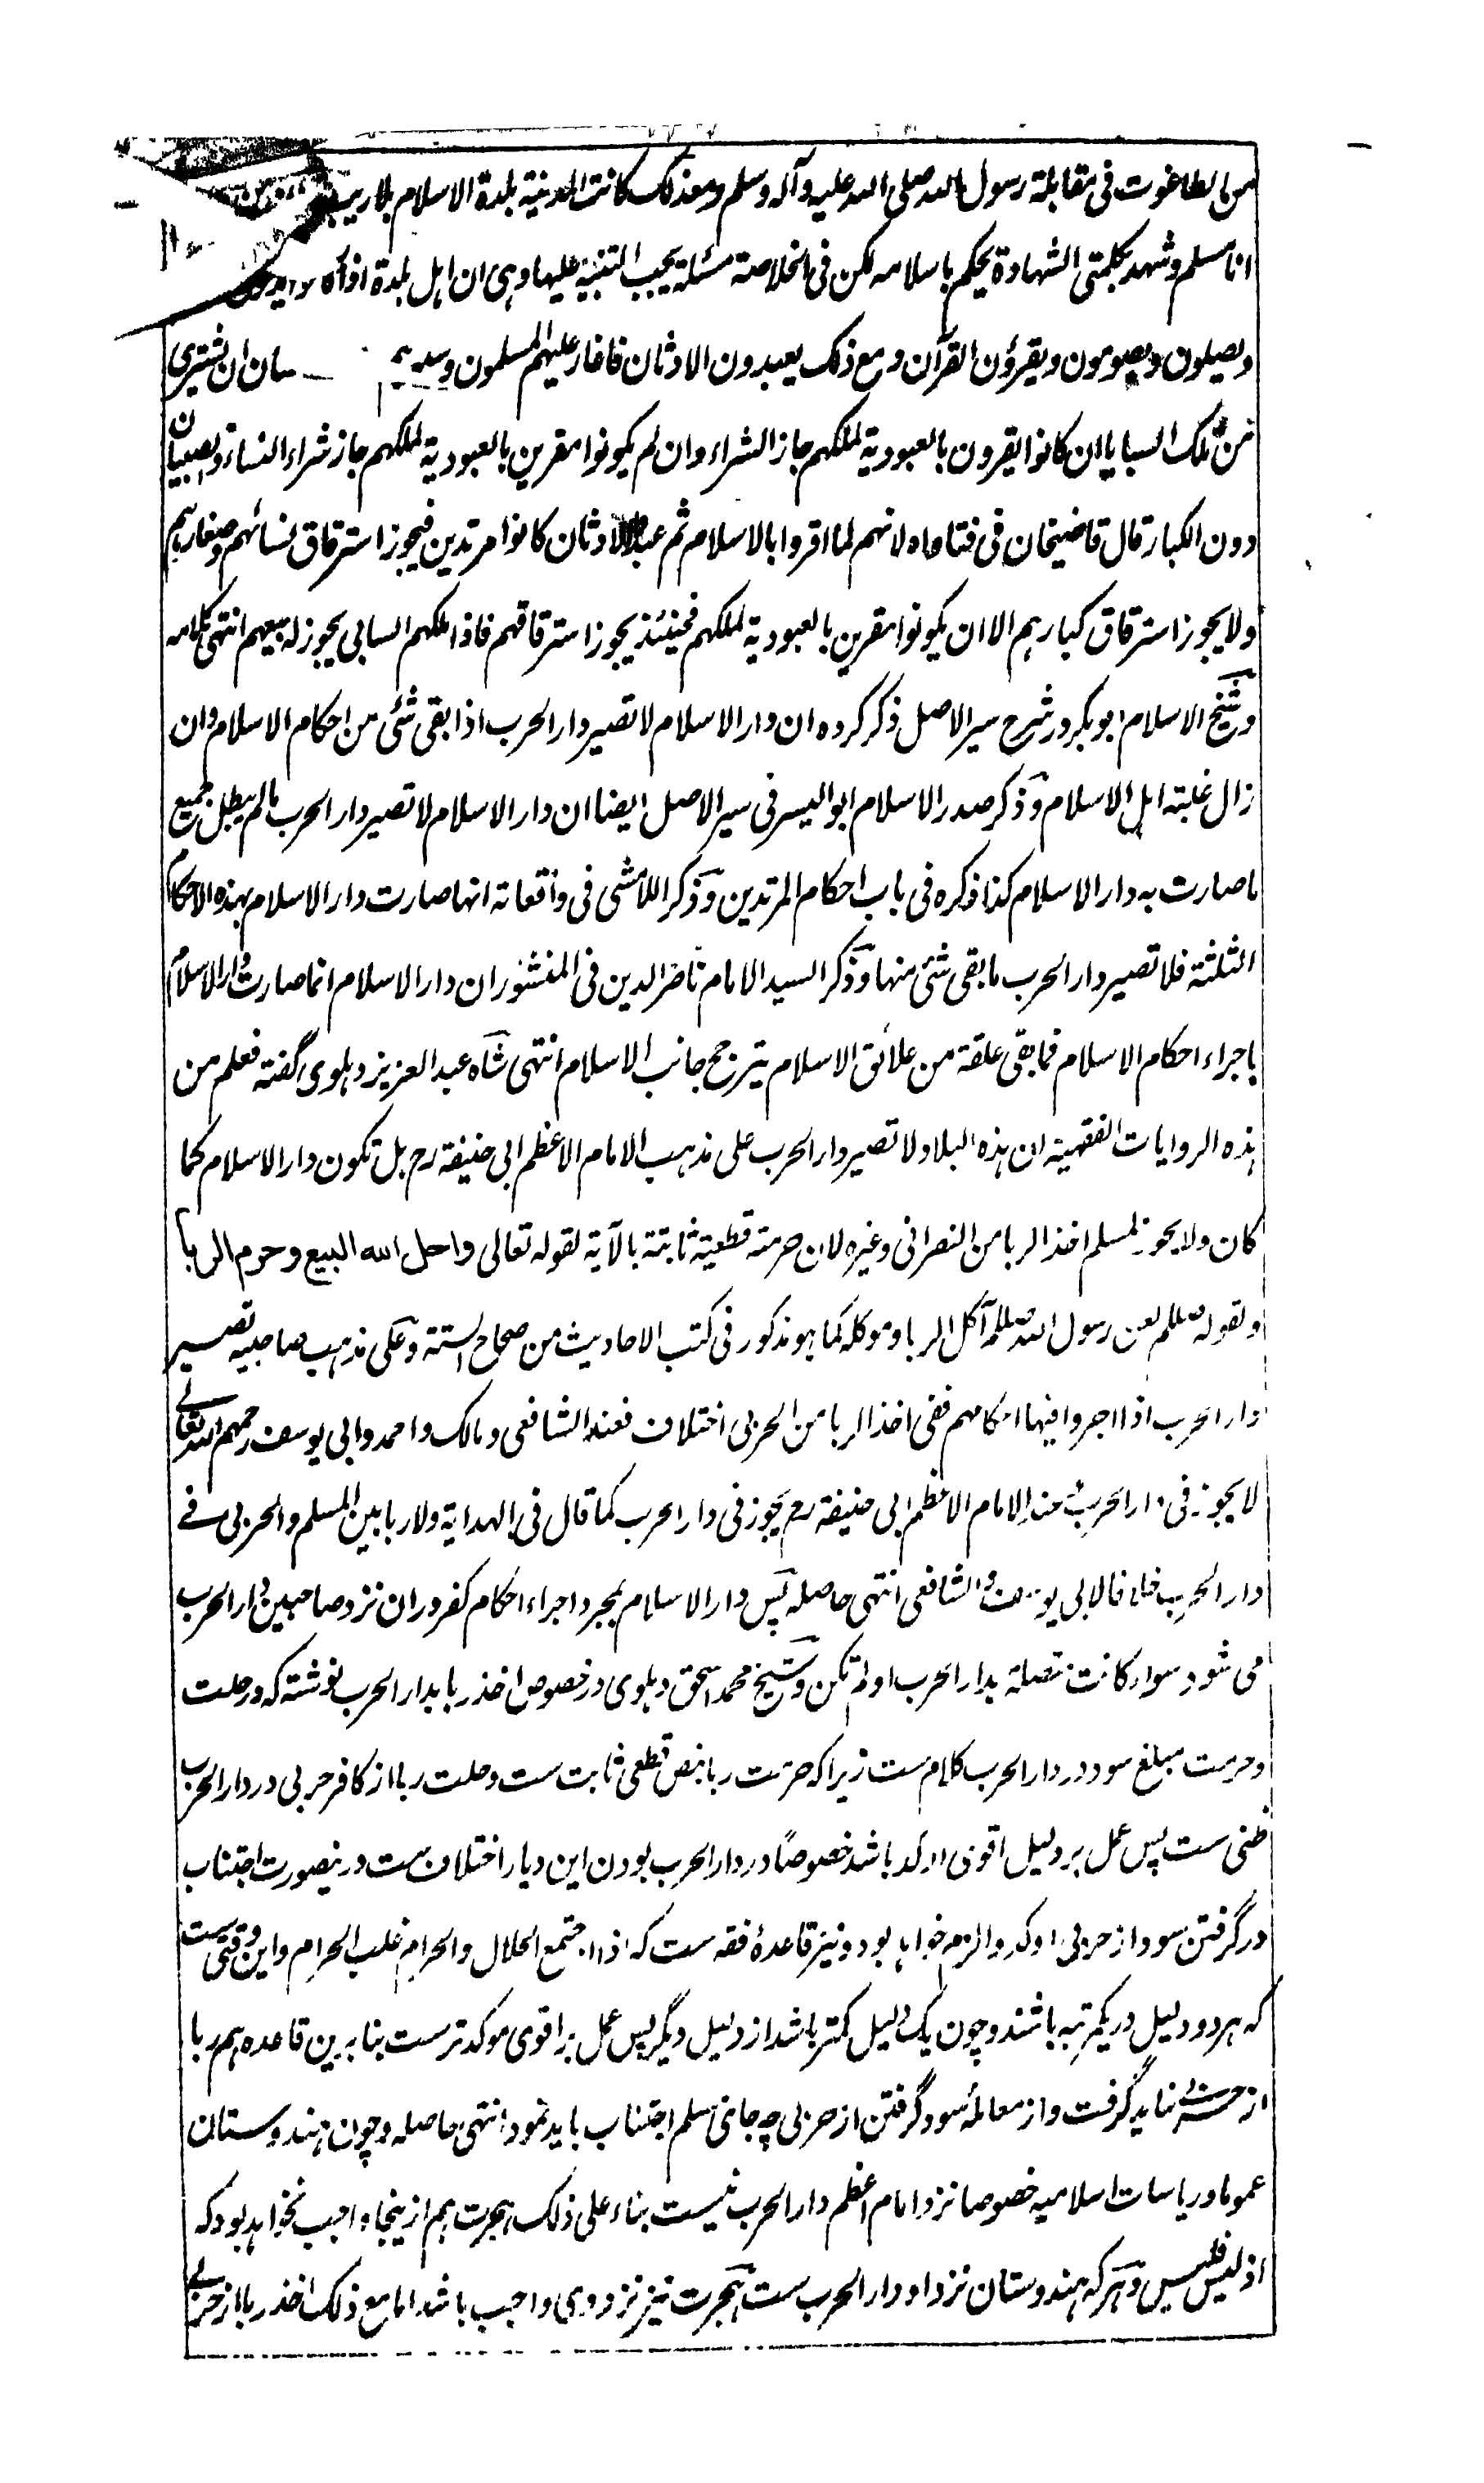 من الطاغوت فی مقابلة رسول الله صلی الله علیه وآله وسلم ومعذلک کانت المدینة بلدة الاسلام بلاریب
انا مسلم وشهد بکلمتی الشهادة یحکم باسلامه لکن فی الخلاصة مسئلة یجب التنبیه علیها وہی ان اہل بلدة اذا
ویصلون ویصومون ویقرؤن القرآن ومع ذلک یعبدون الاوثان فاغار علیہم المسلمون ان یشتری
من تلک السبایا ان کانوا یقرون بالعبودیة لملکہم جاز الشراء وان لم یکونوا مقرین بالعبودیة لملکہم جاز شراء النساء والصبیان
دون الکبار قال قاضیخان فی فتاواه لانہم لما اقروا بالاسلام ثم عبدوا الاوثان کانوا مرتدین فیجوز استرقاق نسائہم وصغارہم
ولا یجوز استرقاق کبارہم الا ان یکونوا مقرین بالعبودیة لملکہم فحینئذ یجوز استرقاقہم فاذا ملکہم السابی یجوز له بیعہم انتہی کلامه
وشیخ الاسلام ابو بکر در شرح سیر الاصل ذکر کرده ان دار الاسلام لا تصیر دار الحرب اذا بقی شئی من احکام الاسلام وان
زال غلبة اہل الاسلام وذکر صدر الاسلام ابو الیسر فی سیر الاصل ایضا ان دار الاسلام لا تصیر دار الحرب مالم یبطل جمیع
ما صارت به دار الاسلام کذا ذکره فی باب احکام المرتدین وذکر اللامشی فی واقعاته انها صارت دار الاسلام بہذه الاحکام
الثلثة فلا تصیر دار الحرب ما بقی شئی منها وذکر السید الامام ناصر الدین فی المنشور ان دار الاسلام انما صارت دار الاسلام
باجراء احکام الاسلام فما بقی علقة من علائق الاسلام یترجح جانب الاسلام انتہی شاه عبد العزیز دہلوی گفته فعلم من
ہذه الروایات الفقہیة ان ہذه البلاد لا تصیر دار الحرب علی مذہب الامام الاعظم ابی حنیفة رح بل تکون دار الاسلام کما
کان ولا یجوز لمسلم اخذ الربا من النصرانی وغیره لان حرمته قطعیة ثابتة بالآیة لقوله تعالی واحل الله البیع وحرم الربا
ولقوله صللم لعن رسول الله صللم آکل الربا وموکله کما ہو مذکور فی کتب الاحادیث من صحاح الستة وعلی مذہب صاحبیه تصیر
دار الحرب اذا اجروا فیها احکامہم ففی اخذ الربا من الحربی اختلاف فعند الشافعی ومالک واحمد وابی یوسف رحمہم الله تعالی
لا یجوز فی دار الحرب وعند الامام الاعظم ابی حنیفة رح یجوز فی دار الحرب کما قال فی الهدایة ولا ربا بین المسلم والحربی فی
دار الحرب خلافا لابی یوسف والشافعی انتہی حاصله پس دار الاسلام بمجرد اجراء احکام کفر دران نزد صاحبین دار الحرب
می شود سواء کانت متصلة بدار الحرب او لم تکن وشیخ محمد اسحق دہلوی در خصوص اخذ ربا بدار الحرب نوشته که در حلت
وحرمت مبلغ سود در دار الحرب کلام ست زیرا که حرمت ربا بنص قطعی ثابت ست وحلت ربا از کافر حربی در دار الحرب
ظنی ست پس عمل بر دلیل اقوی اوکد باشد خصوصاً در دار الحرب بودن این دیار اختلاف ست درینصورت اجتناب
در گرفتن سود از حربی اوکد والزم خواہد بود ونیز قاعدۀ فقه ست که اذا اجتمع الحلال والحرام غلب الحرام واین وقتی ست
که ہر دو دلیل در یکمرتبه باشند وچون یک دلیل کمتر باشد از دلیل دیگر پس عمل بر اقوی موکد ترست بنا برین قاعده ہم ربا
از حربی نباید گرفت واز معاملۀ سود گرفتن از حربی چه جای مسلم اجتناب باید نمود انتہی حاصله وچون ہندوستان
عموما وریاسات اسلامیه خصوصا نزد امام اعظم دار الحرب نیست بناء علی ذلک ہجرت ہم ازینجا واجب نخواہد بود که
اذ لیس فلیس وہر که ہندوستان نزد او دار الحرب ست ہجرت نیز نزد وی واجب باشد اما مع ذلک اخذ ربا از حربی